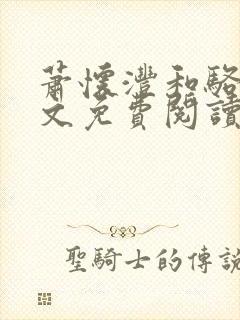 蕭懷灃和駱
文免費閱讀
聖騎士的傳說